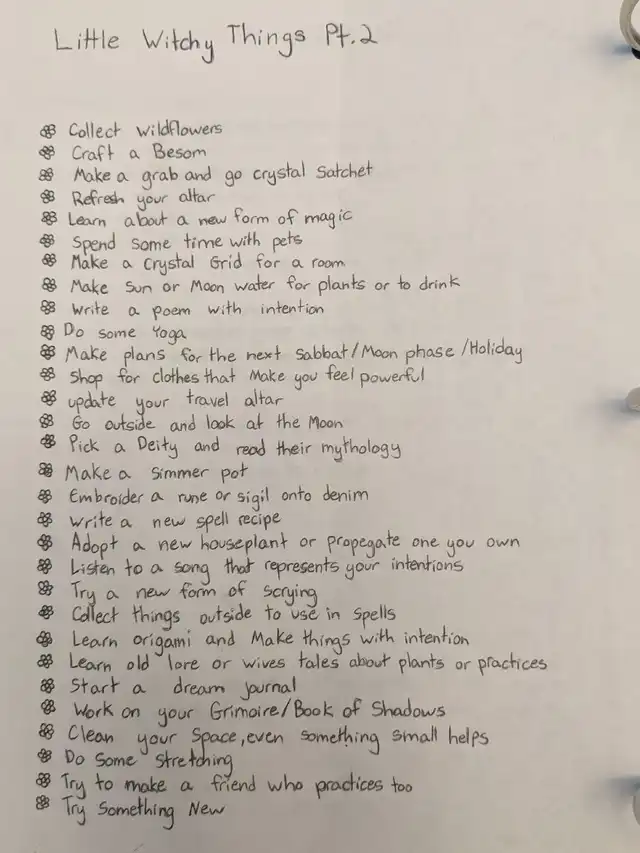 Little Witchy Things Pt.2
Collect wildflowers
Craft a Besom
Make a grab and go crystal satchet
Refresh your altar
Learn about a new form of magic
Spend some time with pets
Make a Crystal Grid for a room
Make Sun or Moon water for plants or to drink
Write a poem with intention
Do some Yoga
Make plans for the next Sabbat/Moon phase/Holiday
Shop for clothes that Make you feel powerful
update your travel altar
Go outside and look at the Moon
Pick a Deity and read their mythology
Make a Simmer pot
Embroider a rune or sigil onto denim
Write a new spell recipe
Adopt a new houseplant or propegate one you own
Listen to a song that represents your intentions
Try a new form of scrying
Collect things outside to use in spells
Learn origami and Make things with intention
Learn old lore or wives tales about plants or practices
Start a dream journal
Work on your Grimoire/Book of Shadows
Clean your Space, even something small helps
Do Some Stretching
Try to make a friend who practices too
Try Something New